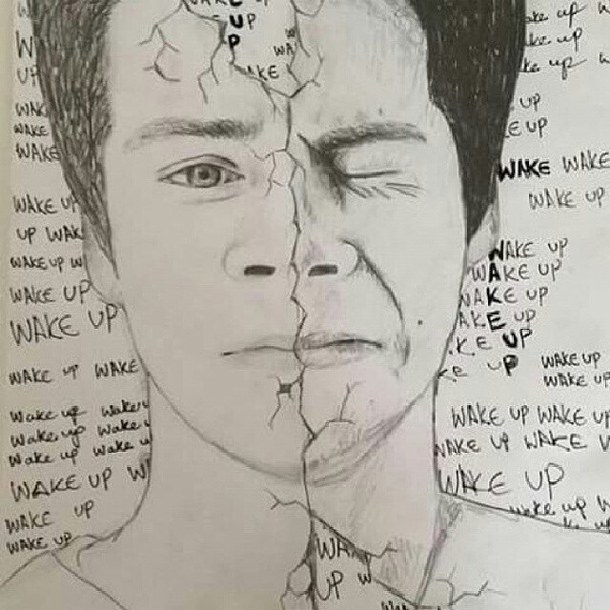 UP
P
WA
AKE
WAKE
UP
WAKE
WAKE
WAKE
WAKE UP
UP WAK
WAKE UP W
WAKE UP
WAKE UP
WAKE UP WAKE
Wake up Wake
Wake up Wake
Wake up Wake u
WAKE UP W
WAKE UP
WAKE UP
ake up w
ake up
ke up w
UP
E UP
WAKE WAKE
WAKE UP
WAKE UP
WAKE UP
WAKE UP
AKE UP
KE UP
KE UP
WAKE UP
WAKE UP
WAKE UP WAKE UP
WAKE UP WAKE
WAKE UP
wake up W
WA
UP W